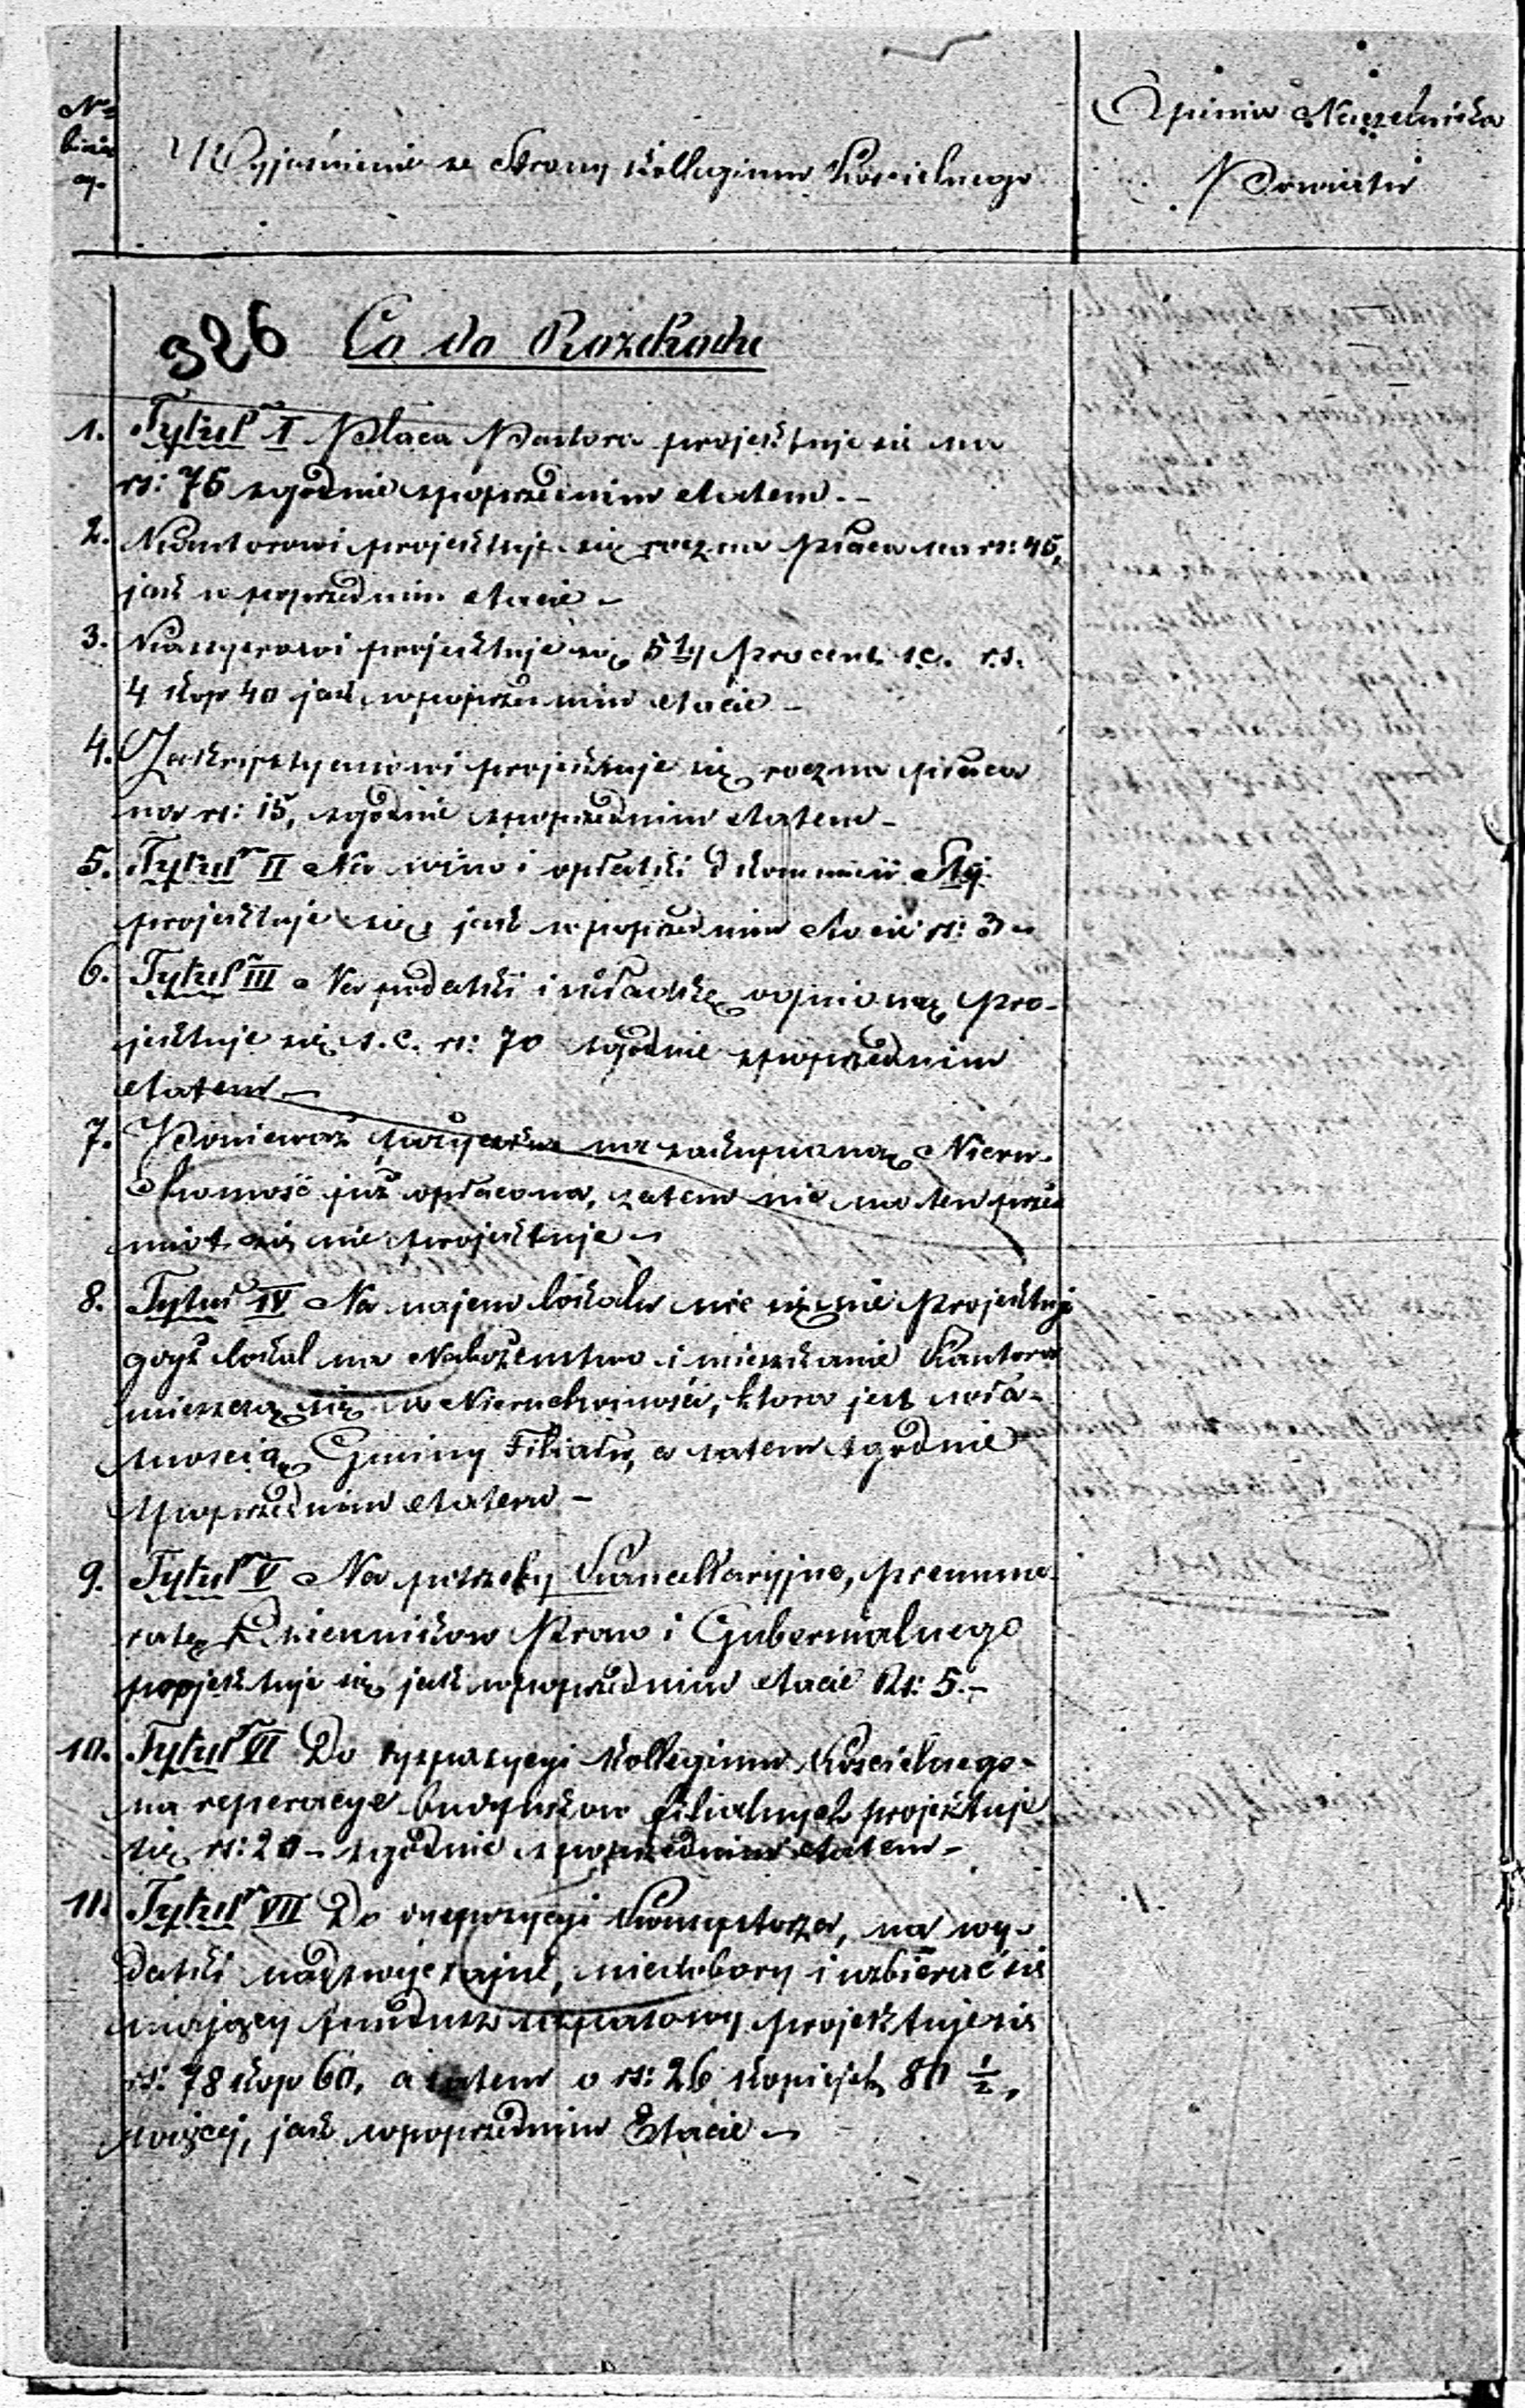 No
bieżą
cy.
Wyjaśnienie ze Strony Kollegium Kościelnego
Opinia Naczelnika
Powiatu
326 Co do Rozchodu
1. Tytuł I Płaca Pastora projektuje się na
rs: 75 zgodnie z poprzednim etatem.-
2. Kantorowi projektuje się roczna płaca na rs: 45,
jak w poprzednim etacie -
3. Kassyerowi projektuje się 5ty procent s.c. rs.
4 kop 40 jak w poprzednim etacie -
4. Zakrystyanowi projektuje się roczna płaca
na rs: 15, zgodnie z poprzednim etatem -
5. Tytuł II Na wino i opłatki d kommunii Stéj
projektuje się jak w poprzednim etacie rs: 3 -
6. Tytuł III Na podatki i składkę ogniową pro-
jektuje się s.c. rs: 70 zgodnie z poprzednim
etatem -
7. Ponieważ pożyczka na zakupioną Nieru-
chomość już opłacona, zatem nic na ten przed
miot się nie projektuje -
8. Tytuł IV Na najem lokalu nic się nie projektuje
gdyż lokal na Nabożeństwo i mieszkanie Kantora
mieszczą się w Nieruchomości, ktora jest włas-
nością Gminy Filiału, a zatem zgodnie
z poprzednim etatem -
9. Tytuł V Na potrzeby Kancellaryjne, prenume-
ratę Dzienników Praw i Gubernialnego
projektuje się jak w poprzednim etacie Rs: 5.-
10. Tytuł VI Do dyspozycyi Kollegium Kościelnego
na reperacye budynkow filialnych projektuje
się rs: 20 - zgodnie z poprzednim etatem -
11. Tytuł VII Do dyspozycyi Konsystorza, na wy-
datki nadzwyczajne, niedobory i uzbierać się
mający fundusz zapasowy projektuje się
rs: 78 kop 60, a zatem o rs: 26 kopiejek 80 ½,
więcej, jak w poprzednim Etacie -